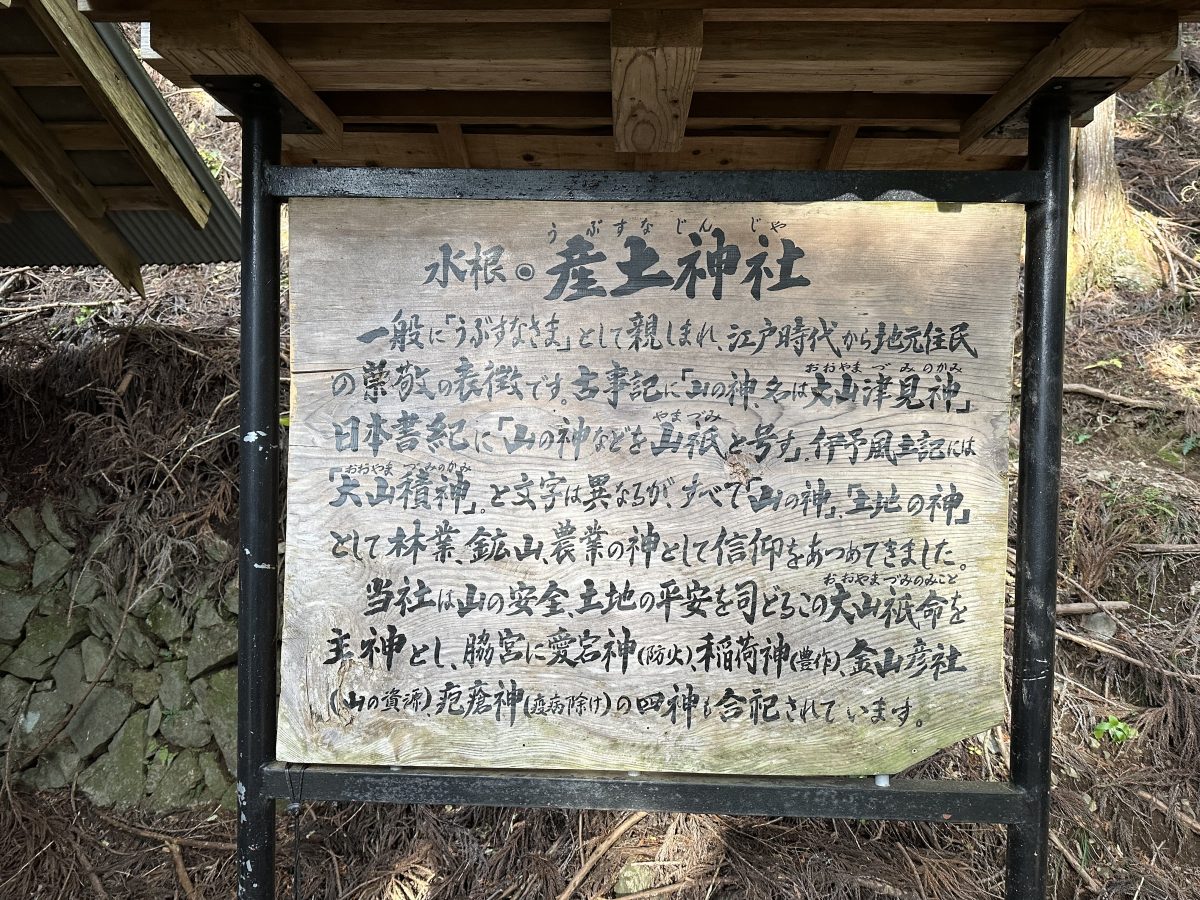 うぶすなじんじゃ
水根◎産土神社
一般に「うぶすなさま」として親しまれ、江戸時代から地元住民
おおやまづみのかみ
の崇敬の表徴です。古事記に「山の神、名は大山津見神」
やまづみ
日本書紀に「山の神などを山祇と号す」、伊予風土記には
おおやまづみのかみ
「大山積神」。と文字は異なるが、すべて「山の神」、「土地の神」
として林業、鉱山、農業の神として信仰をあつめてきました。
おおやまづみのみこと
当社は山の安全、土地の平安を司どるこの大山祇命を
主神とし、脇宮に愛宕神(防火)、稲荷神(豊作)、金山彦社
(山の資源)、疱瘡神(疫病除け)の四神も合祀されています。